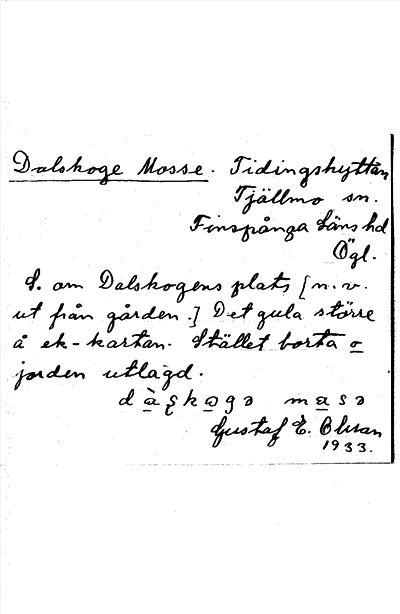 Dalskoge Mosse. Tidingshyttan
Tjällmo sn.
Finspånga läns hd
Ögl.
S. om Dalskogens plats [n.v.
ut från gården.] Det gula större
å ek-kartan. Stället borta o
jorden utlagd.
Gustaf E.
1933.